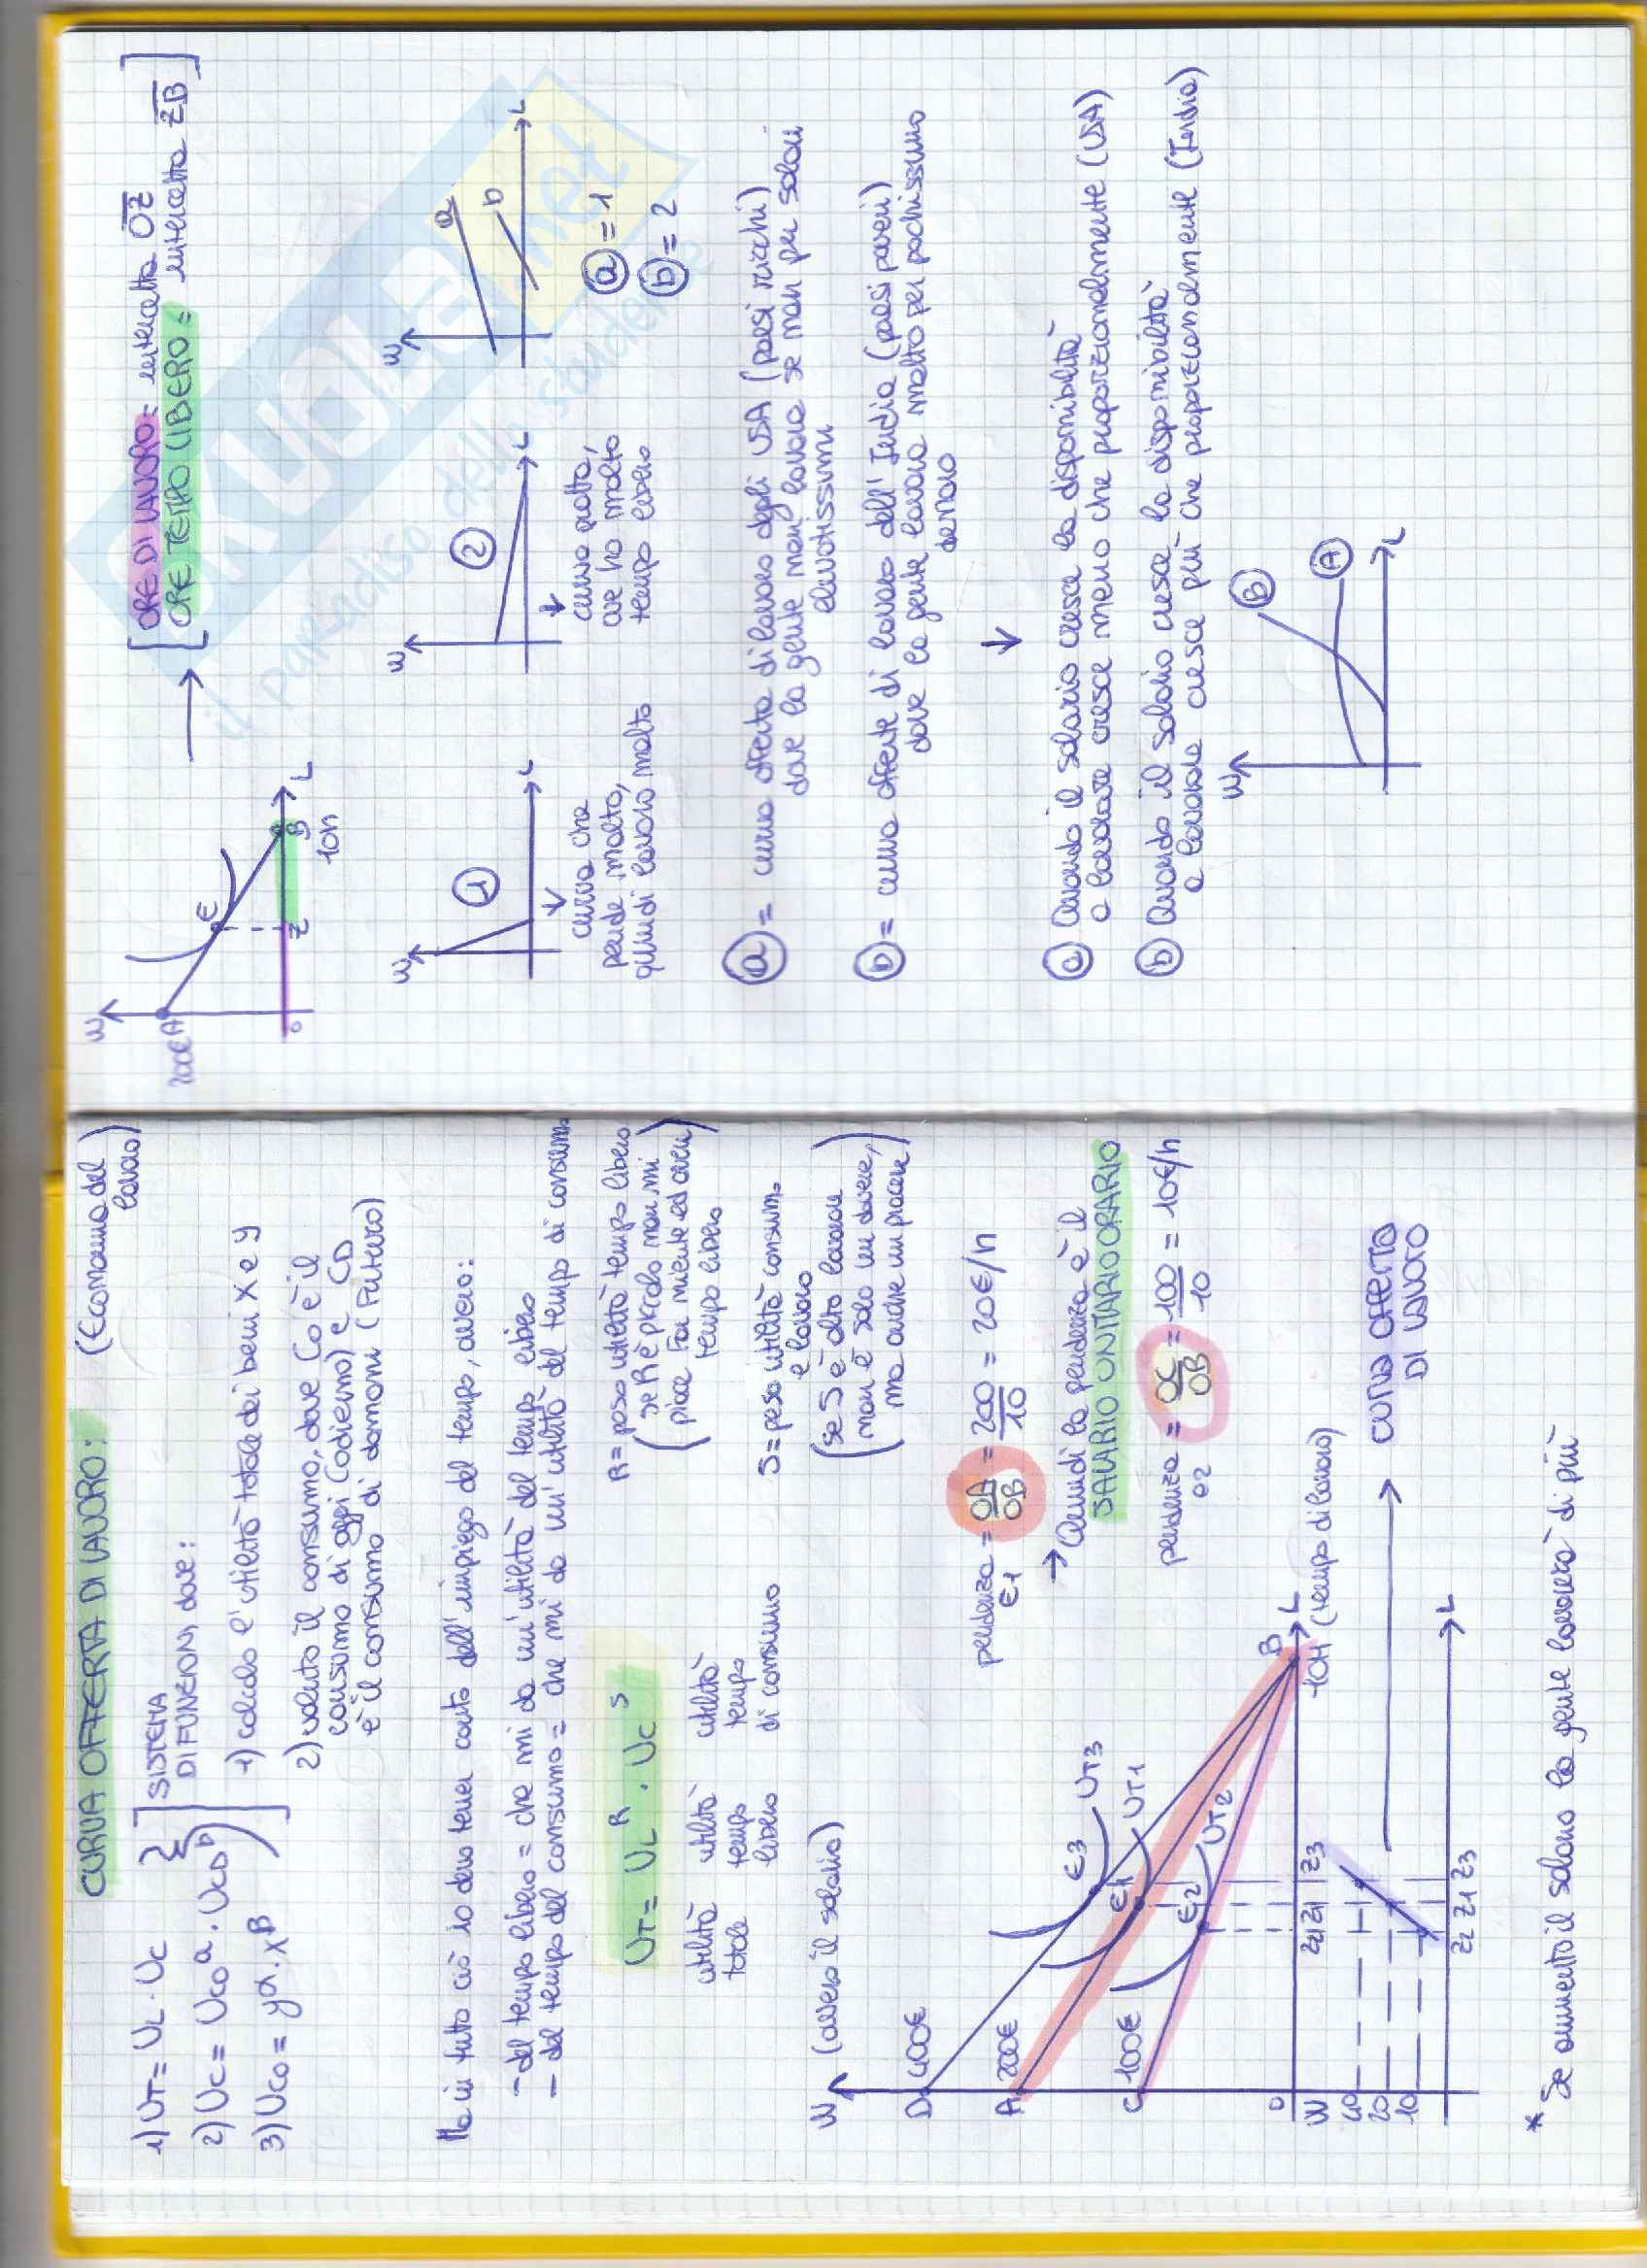 CURVA OFFERTA DI LAVORO:
(Economia del
lavoro)
1) UT = UL · UC
2) UC = UCO^a · UCD^b
3) UCO = y^α · x^β
SISTEMA
DI FUNZIONI, dove:
1) calcolo l'utilità totale dei beni x e y
2) valuto il consumo, dove Co è il
consumo di oggi (odierno) e CD
è il consumo di domani (futuro)
Ma in tutto ciò io devo tener conto dell'impiego del tempo, ovvero:
- del tempo libero = che mi da un'utilità del tempo libero
- del tempo del consumo = che mi da un'utilità del tempo di consumo
UT = UL^R · UC^S
utilità
totale
utilità
tempo
libero
utilità
tempo
di consumo
R = peso utilità tempo libero
(se R è piccolo non mi
piace far niente ed aver
tempo libero)
S = peso utilità consumo
e lavoro
(se S è alto lavorare
non è solo un dovere,
ma anche un piacere)
W (ovvero il salario)
D 400€
A 200€
C 100€
O
E3
UT3
E1
UT1
E2
UT2
B
L
10H (tempo di lavoro)
Z2 Z1 Z3
pendenza E1 = OA/OB = 200/10 = 20€/h
→ Quindi la pendenza è il
SALARIO UNITARIO ORARIO
pendenza E2 = OC/OB = 100/10 = 10€/h
W
40
20
10
Z2 Z1 Z3
L
CURVA OFFERTA
DI LAVORO
* Se aumento il salario la gente lavorerà di più
W
200€ A
E
O
Z
B
10h
L
[ORE DI LAVORO = intercetta OZ
ORE TEMPO LIBERO = intercetta ZB]
W
1
L
curva che
pende molto,
quindi lavoro molto
W
2
L
curva piatta,
ove ho molto
tempo libero
W
a
b
L
a = 1
b = 2
a = curva offerta di lavoro degli USA (paesi ricchi)
dove la gente non lavora se non per salari
elevatissimi
b = curva offerta di lavoro dell'India (paesi poveri)
dove la gente lavora molto per pochissimo
denaro
a Quando il salario cresce la disponibilità
a lavorare cresce meno che proporzionalmente (USA)
b Quando il salario cresce la disponibilità
a lavorare cresce più che proporzionalmente (India)
W
B
A
L
SKUOLA.net
il paradiso dello studente